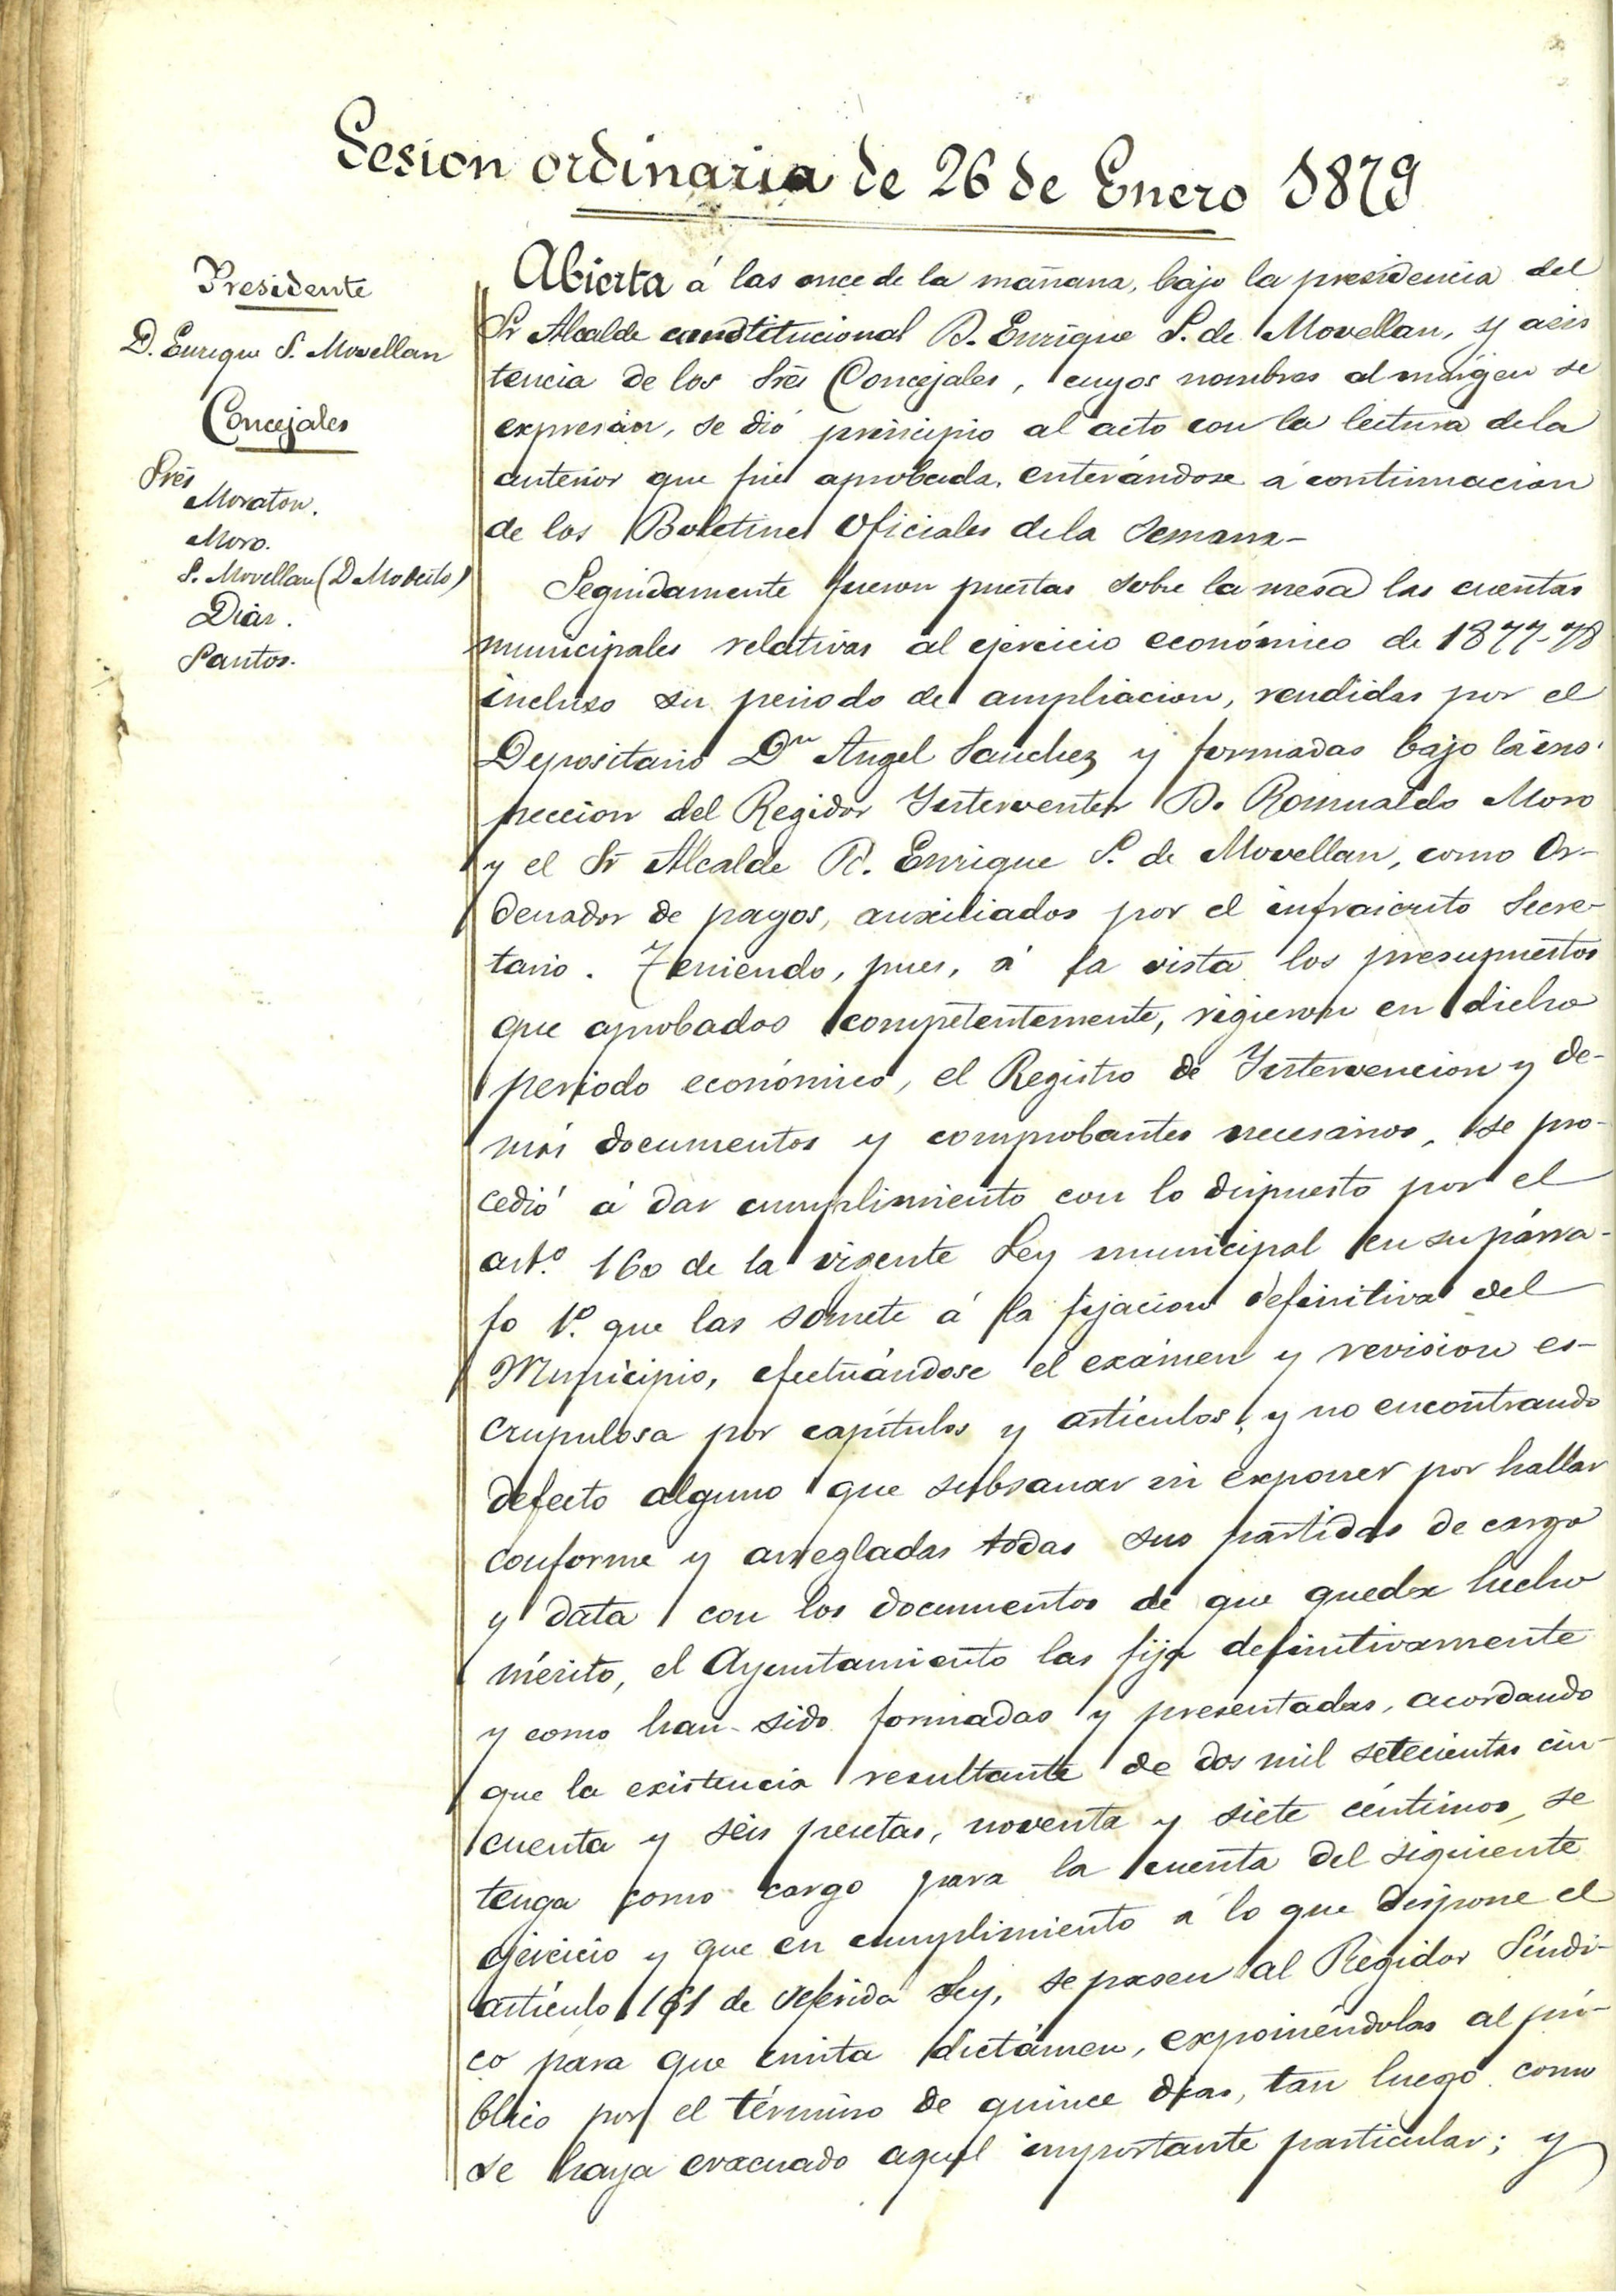 Sesion ordinaria de 26 de Enero 1879
Presidente
D. Enrique S. Movellan
Concejales
Sres
Moraton.
Moro.
S. Movellan (D Modesto)
Diaz.
Santos.
Abierta á las once de la mañana, bajo la presidencia del
Sr Alcalde constitucional D. Enrique S. de Movellan, y asis
tencia de los Sres Concejales, cuyos nombres al márgen se
expresan, se dió principio al acto con la lectura dela
anterior que fué aprobada, enterándose á continuacion
de los Boletines Oficiales dela Semana-
Seguidamente fueron puestas sobre la mesa las cuentas
municipales relativas al ejercicio económico de 1877-78
incluso su periodo de ampliacion, rendidas por el
Depositario Dn Angel Sanchez y formadas bajo la ins-
peccion del Regidor Interventor D. Romualdo Moro
y el Sr Alcalde D. Enrique S. de Movellan, como Or-
denador de pagos, auxiliados por el infraicrito Secre-
tario. Teniendo, pues, á la vista los presupuestos
que aprobados competentemente, rigieron en dicho
periodo económico, el Registro de Intervencion y de-
más documentos y comprobantes necesarios, se pro-
cedió á dar cumplimiento con lo dispuesto por el
artº. 160 de la vigente Ley municipal en su párra-
fo 1º. que las somete á la fijacion definitiva del
Municipio, efectuándose el exámen y revision es-
crupulosa por capítulos y artículos, y no encontrando
defecto alguno que subsanar ni exponer por hallar
conforme y arregladas todas sus partidas de cargo
y data con los documentos de que queda hecho
mérito, el Ayuntamiento las fija definitivamente
y como han sido formadas y presentadas, acordando
que la existencia resultante de dos mil setecientas cin-
cuenta y seis pesetas, noventa y siete céntimos, se
tenga como cargo para la cuenta del siguiente
ejercicio y que en cumplimiento á lo que dispone el
artículo 161 de referida Ley, se pasen al Regidor Síndi-
co para que emita dictámen, exponiéndolas al pú-
blico por el término de quince dias, tan luego como
se haya evacuado aquel importante particular; y